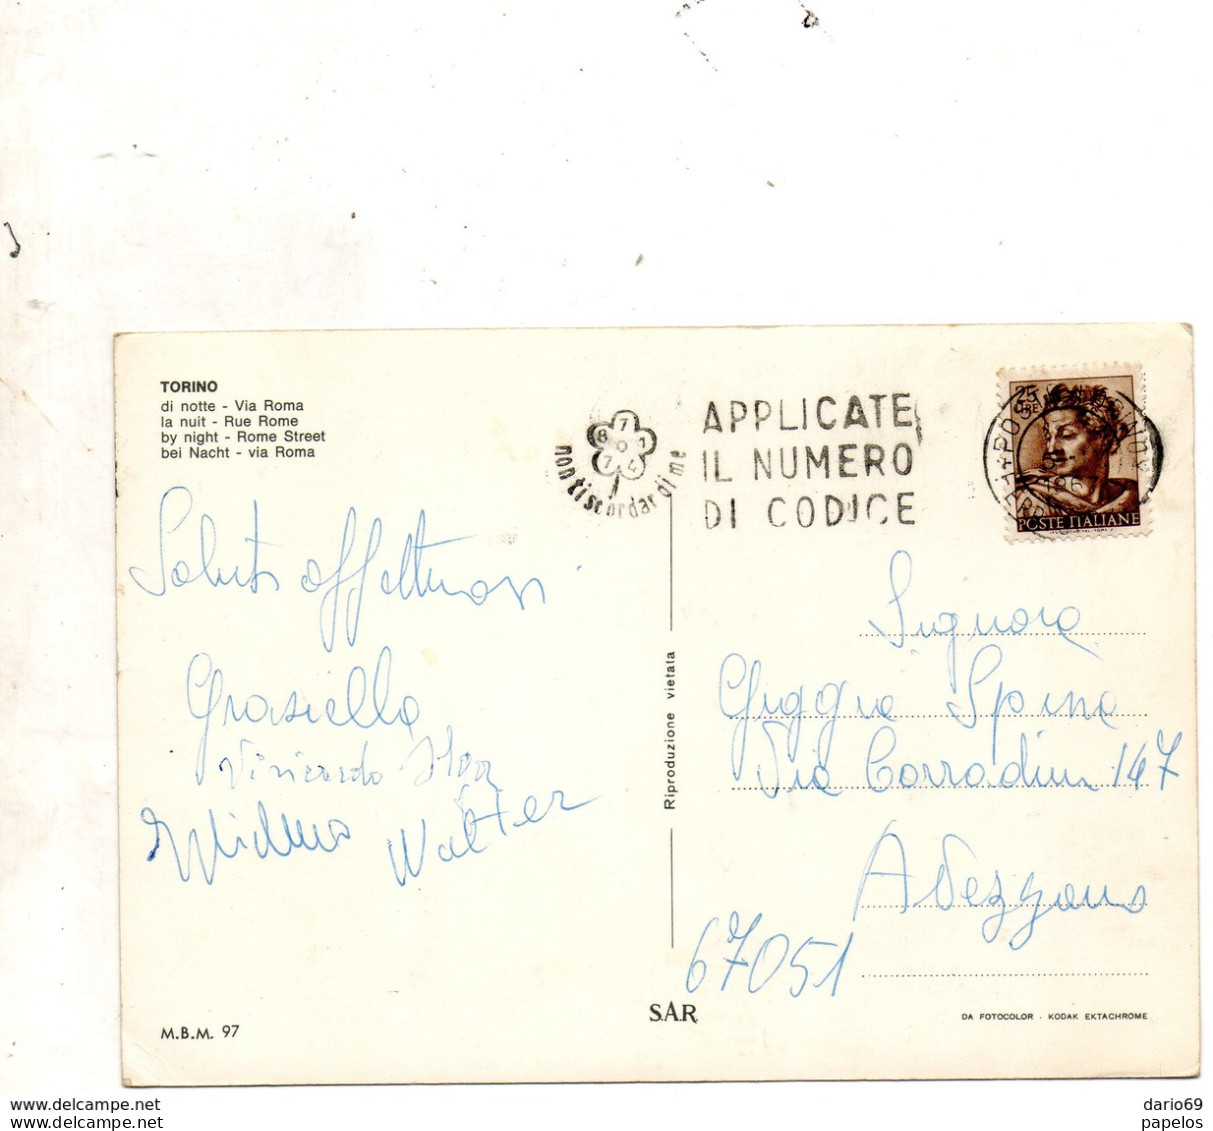 TORINO
di notte - Via Roma
la nuit - Rue Rome
by night - Rome Street
bei Nacht - via Roma
8 7 1 0 7 4
nontiscordardime
APPLICATE
IL NUMERO
DI CODICE
25
LIRE
POSTE ITALIANE
Saluti affettuosi
Graziella
Walter
Riproduzione vietata
Signora
Giggia Spina
Via Corradini 147
Avezzano
67051
SAR
M.B.M. 97
DA FOTOCOLOR - KODAK EKTACHROME
www.delcampe.net
www.delcampe.net
dario69
papelos